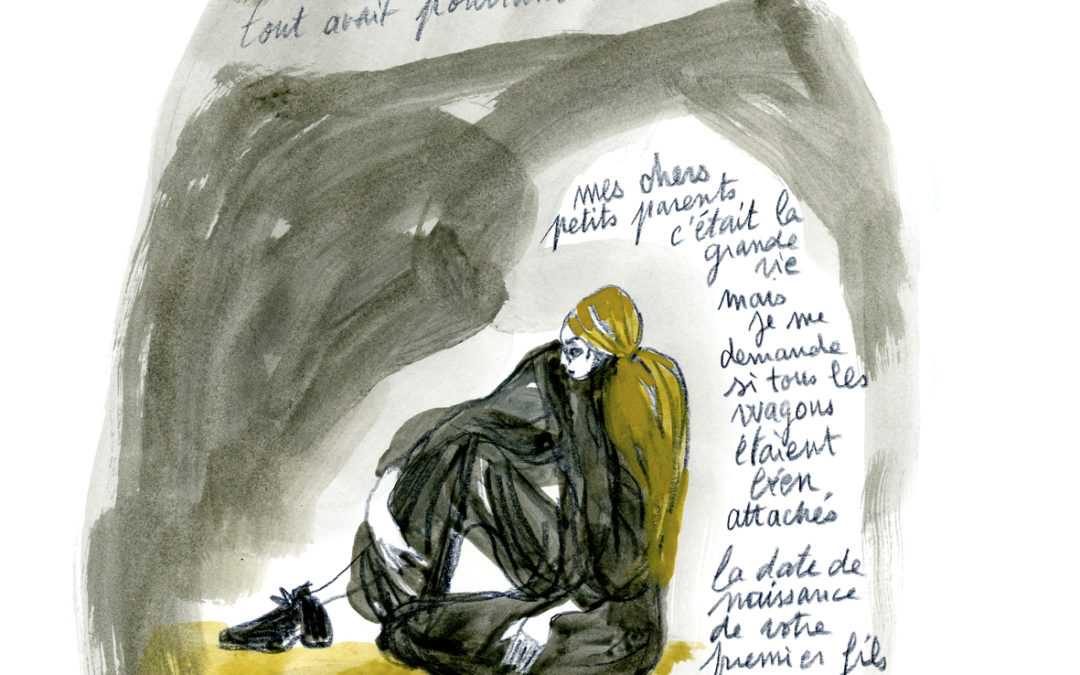 tout avait pourtant
mes chers
petits parents
c'était la
grande
vie
mais
je me
demande
si tous les
wagons
étaient
bien
attachés
la date de
naissance
de votre
premier fils